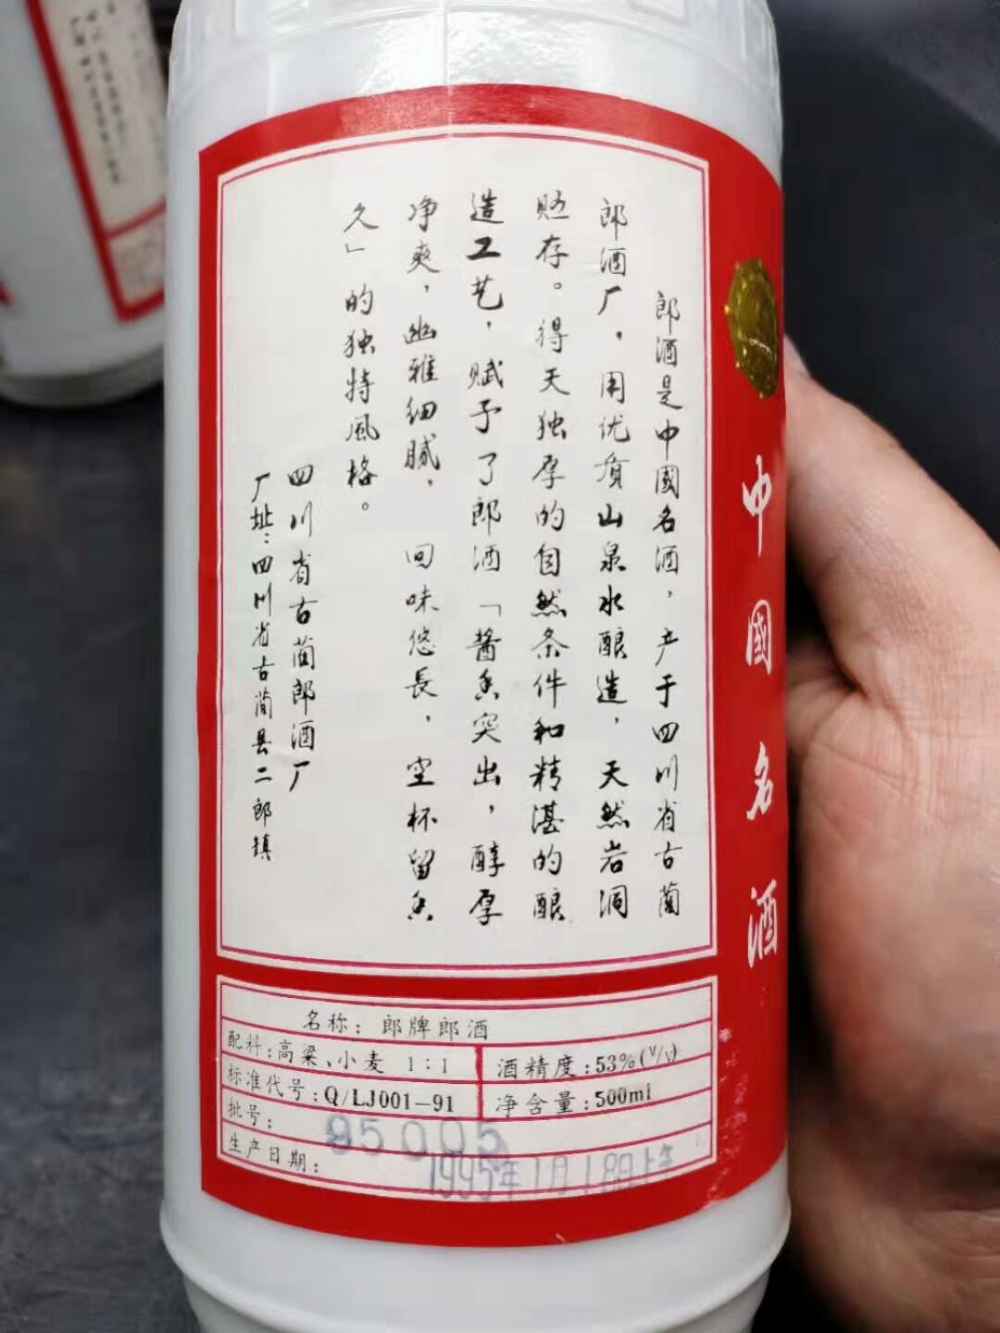 郎酒是中國名酒，产于四川省古蔺
郎酒厂，用优质山泉水酿造，天然岩洞
贮存。得天独厚的自然条件和精湛的酿
造工艺，赋予了郎酒「酱香突出，醇厚
净爽，幽雅细腻，回味悠長，空杯留香
久」的独特風格。
四川省古蔺郎酒厂
厂址：四川省古蔺县二郎镇
中國名酒
名称：郎牌郎酒
配料：高粱、小麦 1：1
酒精度：53%(V/V)
标准代号：Q/LJ001-91
净含量：500ml
批号：95005
生产日期：1995年1月18日